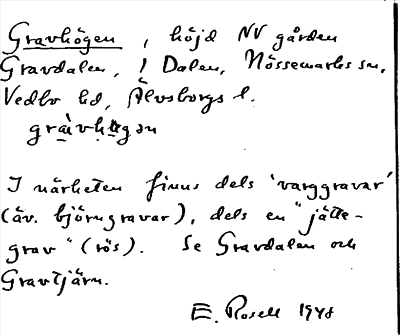 Gravhögen, höjd NV gården
Gravdalen, 1 Dalen, Nössemarks sn,
Vedbo hd, Älvsborgs l.
I närheten finns dels 'varggravar'
(äv. björngravar), dels en "jätte-
grav" (rös). Se Gravdalen och
Gravtjärn.
E. Rosell 1948